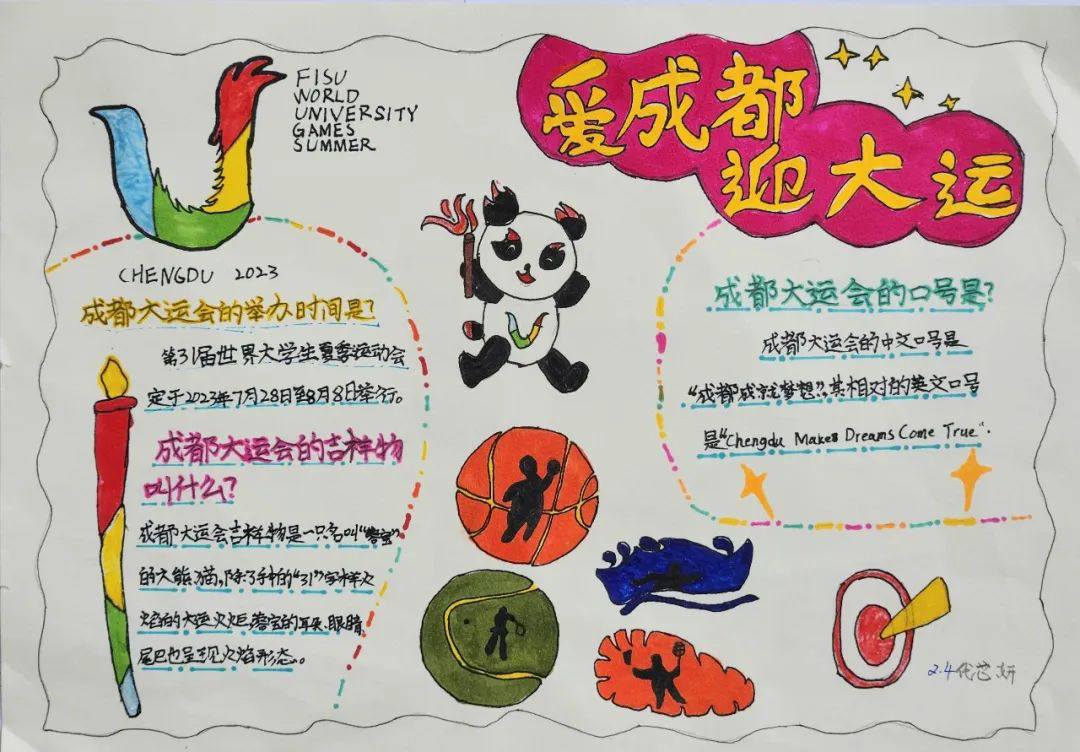 FISU
WORLD
UNIVERSITY
GAMES
SUMMER
CHENGDU 2023
爱成都
迎大运
成都大运会的举办时间是?
第31届世界大学生夏季运动会
定于2023年7月28日至8月8日举行。
成都大运会的吉祥物
叫什么?
成都大运会吉祥物是一只名叫“蓉宝”
的大熊猫,除了手中的“31”字样火
焰的大运火炬,蓉宝的耳朵、眼睛
尾巴也呈现火焰形态。
成都大运会的口号是?
成都大运会的中文口号是
“成都成就梦想”,其相对的英文口号
是“Chengdu Makes Dreams Come True”.
2.4代芯妍